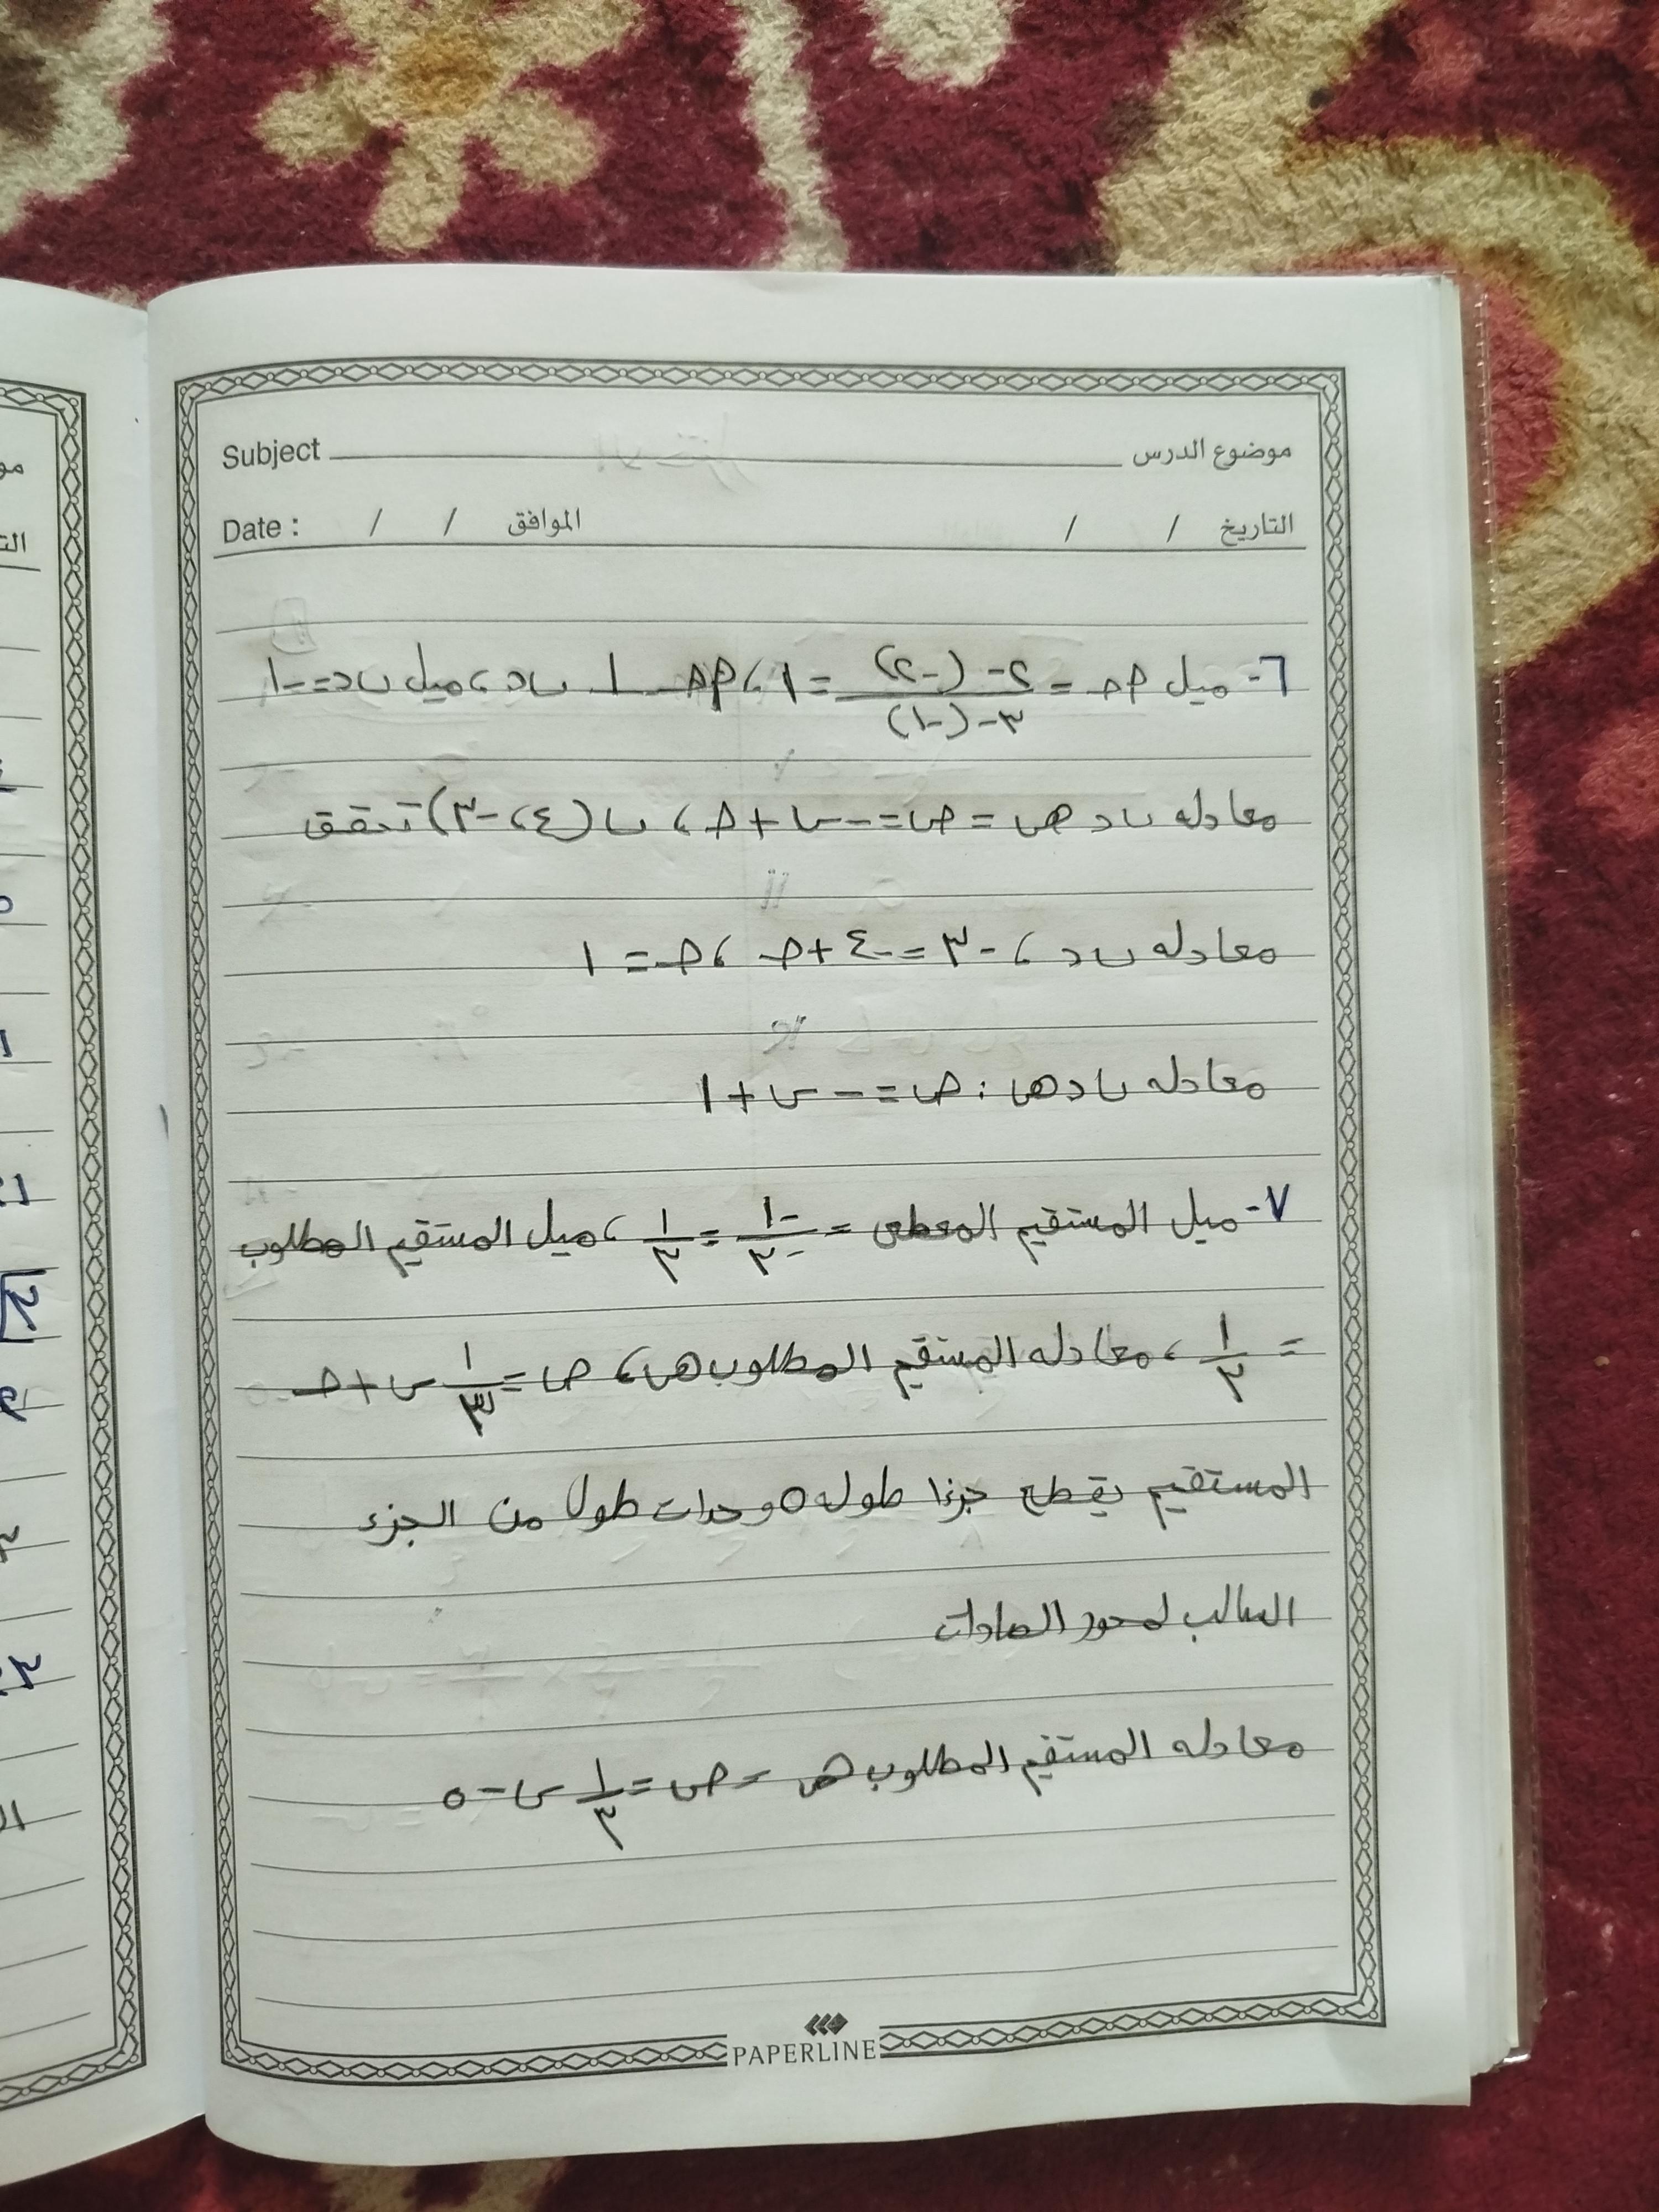 Subject موضوع الدرس
Date : / / الموافق / / التاريخ
٦- ميل أحـ = ٢- (-٢) / ٣- (-١) = ١ ، أحـ ⊥ ب د ، ميل ب د = -١
معادله ب د هى = ص = -س + حـ ، ب (٤ ، -٣) تحقق
معادله ب د ، -٣ = -٤ + حـ ، حـ = ١
معادله ب د هى : ص = - س + ١
٧- ميل المستقيم المعطى = -١/-٣ = ١/٣ ، ميل المستقيم المطلوب
= ١/٣ ، معادله المستقيم المطلوب هى ، ص = ١/٣ س + حـ
المستقيم يقطع جزءا طوله ٥ وحدات طول من الجزء
السالب لمحور الصادات
معادله المستقيم المطلوب هى = ص = ١/٣ س - ٥
PAPERLINE